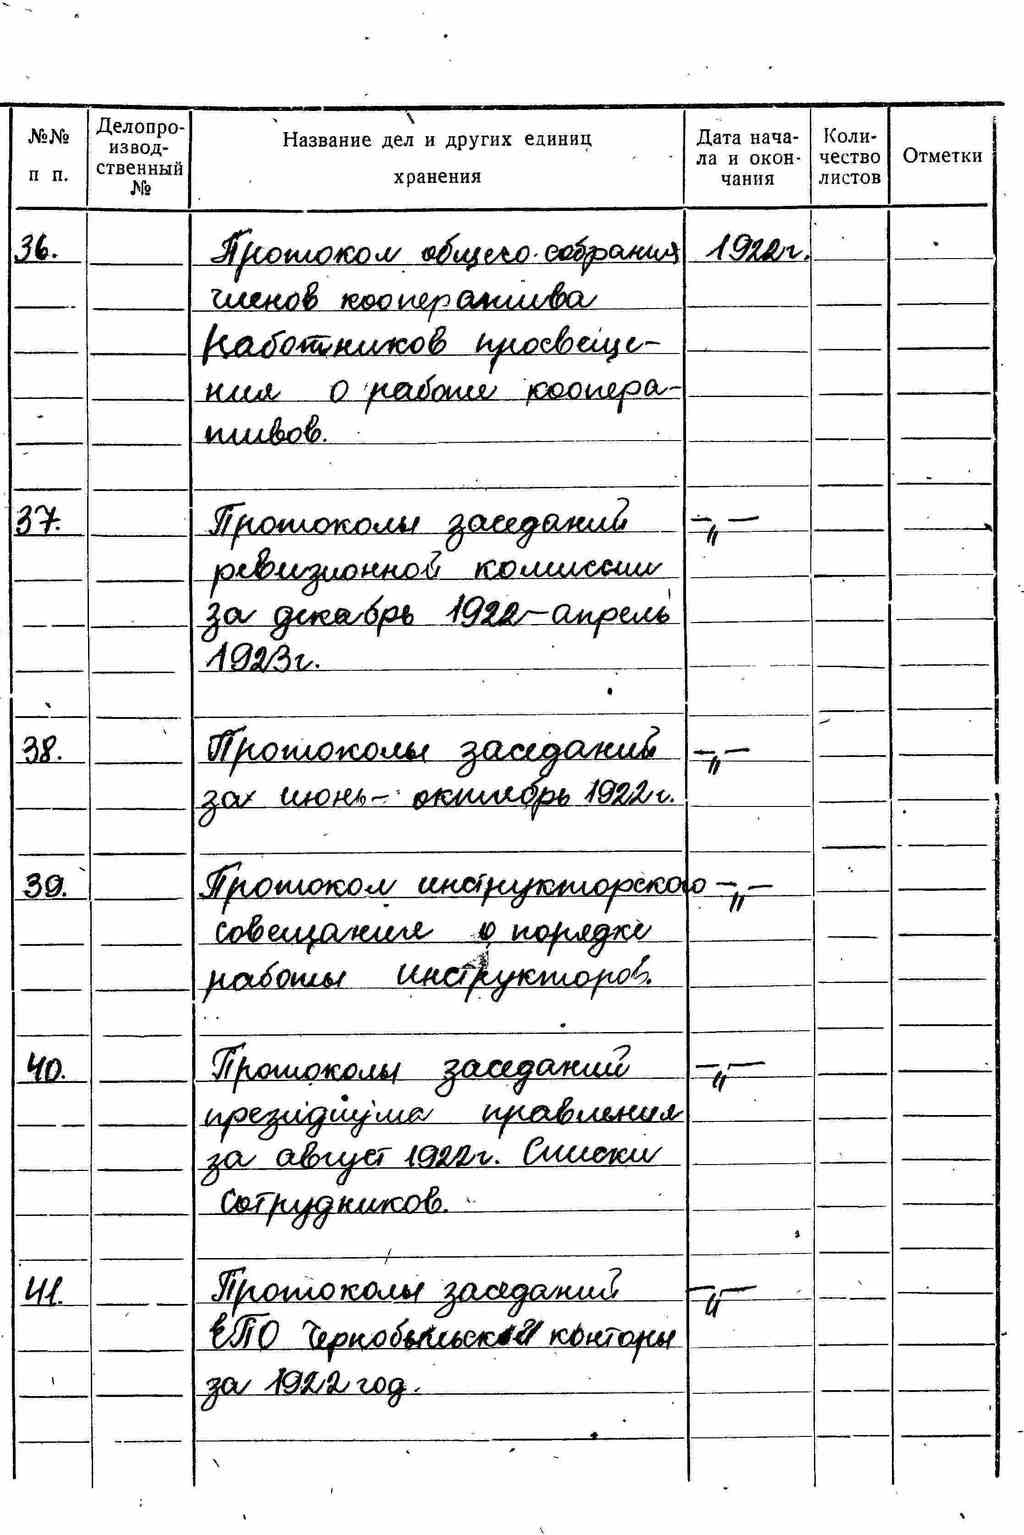 №№ п п.
Делопро-
извод-
ственный
№
Название дел и других единиц
хранения
Дата нача-
ла и окон-
чания
Коли-
чество
листов
Отметки
36. Протокол общего собрания 1922г.
членов кооператива
работников просвеще-
ния о работе коопера-
тивов.
37. Протоколы заседаний —"—
ревизионной комиссии
за декабрь 1922-апрель
1923г.
38. Протоколы заседаний —"—
за июнь- октябрь 1922г.
39. Протокол инструкторского —"—
совещания о порядке
работы инструкторов.
40. Протоколы заседаний —"—
президиума правления
за август 1922г. Списки
сотрудников.
41. Протоколы заседаний —"—
ЕПО Чернобыльской конторы
за 1922 год.